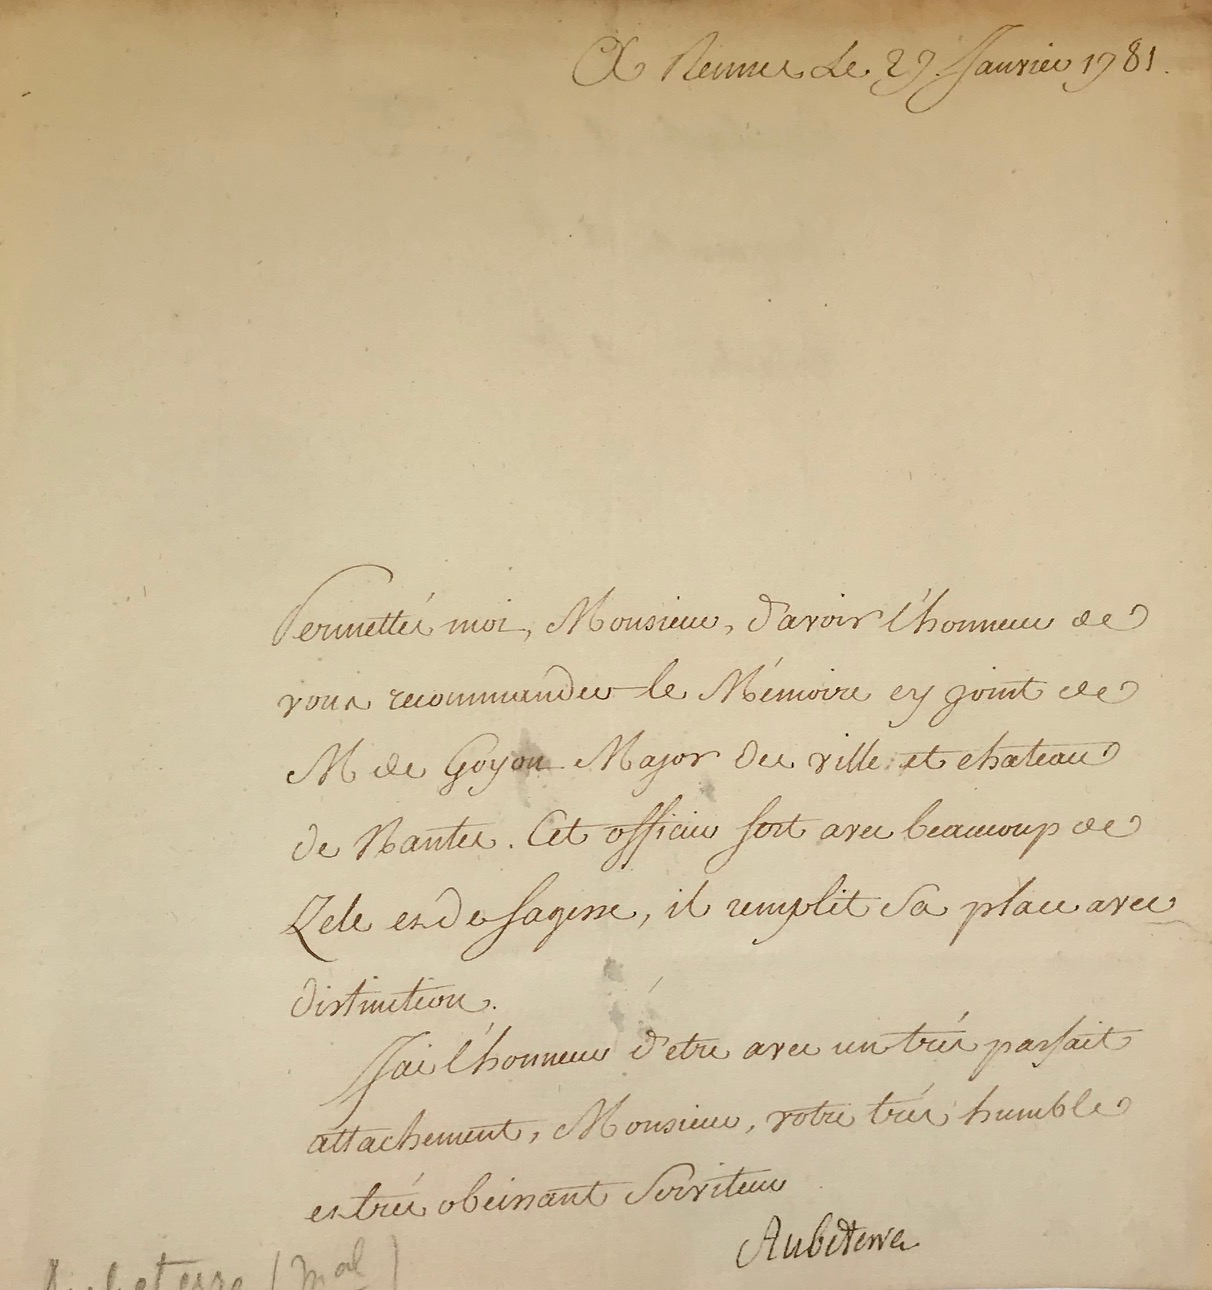 A Rennes Le 27. Janvier 1781.
Permettés moi, Monsieur, d'avoir l'honneur de
vous recommander le Mémoire cy joint de
M de Goyon Major des ville et chateau
de Nantes. Cet officier sert avec beaucoup de
Zele et de sagesse, il remplit sa place avec
distinction.
J'ai l'honneur d'etre avec un trés parfait
attachement, Monsieur, votre trés humble
et trés obeissant Serviteur
Aubeterre
Aubeterre (mal)